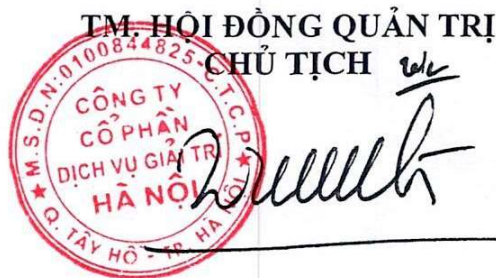 TM. HỘI ĐỒNG QUẢN TRỊ
CHỦ TỊCH
M.S.D.N:0100844825-C.T.C.P
CÔNG TY
CỔ PHẦN
DỊCH VỤ GIẢI TRÍ
HÀ NỘI
Q. TÂY HỒ - TP. HÀ NỘI